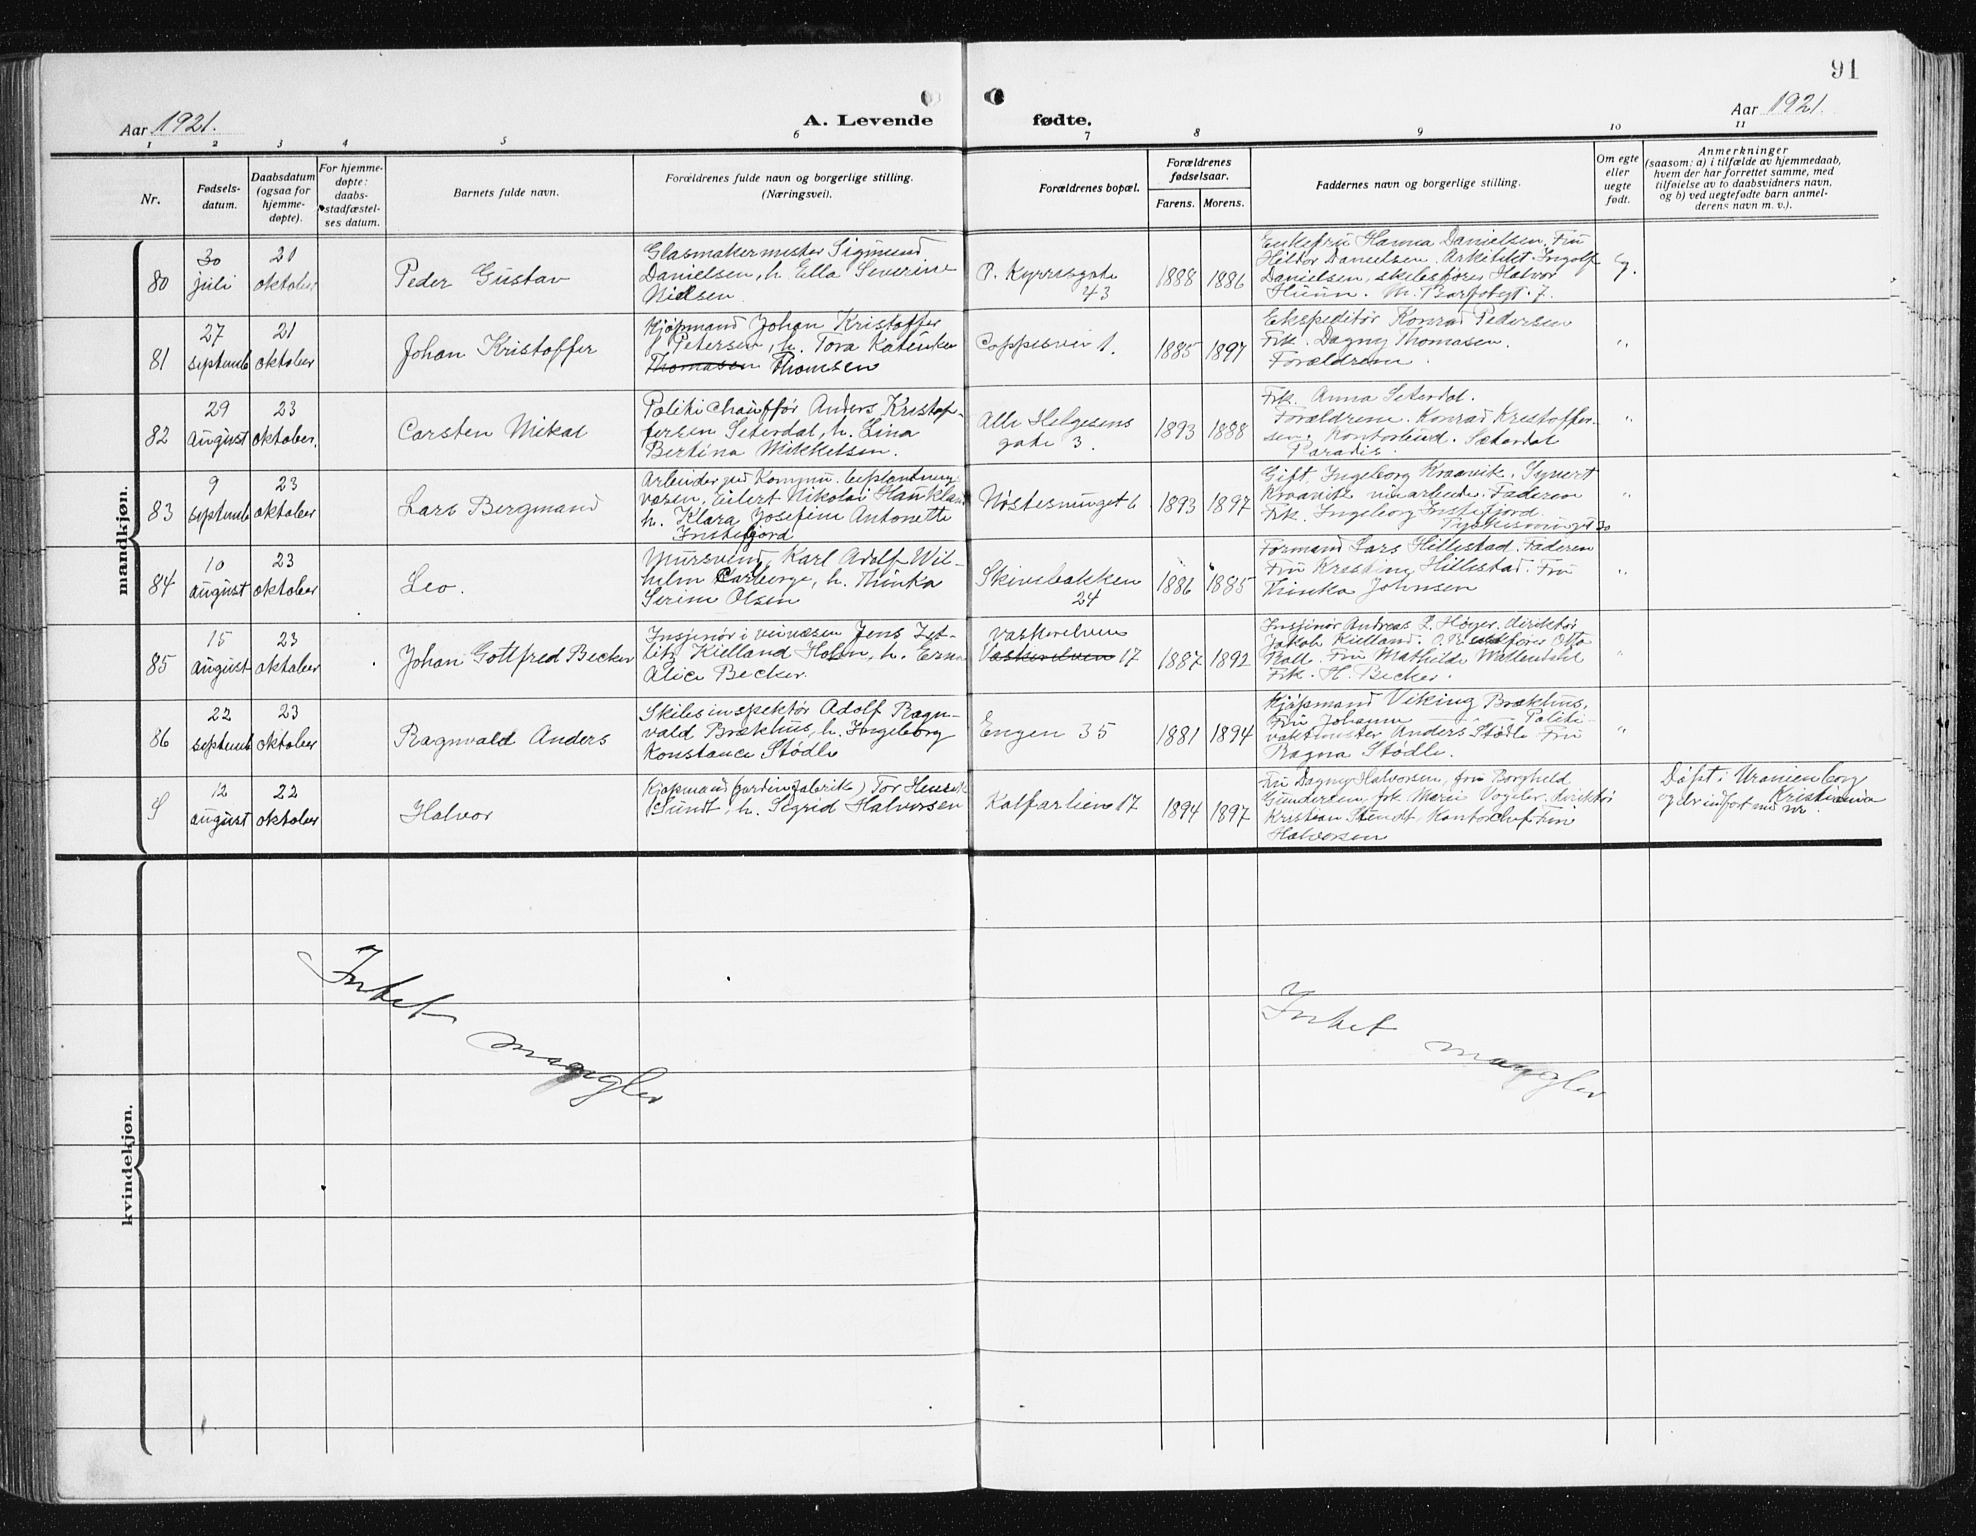 91
Aar 1921.
A. Levende
fødte.
Aar 1921.
1 2 3 4 5 6 7 8 9 10 11
Nr.
Fødsels-
datum.
Daabsdatum
(ogsaa for
hjemme-
døpte).
For hjemme-
døpte:
daabs-
stadfæstel-
ses datum.
Barnets fulde navn.
Forældrenes fulde navn og borgerlige stilling.
(Næringsvei).
Forældrenes bopæl.
Forældrenes
fødselsaar.
Farens. Morens.
Faddernes navn og borgerlige stilling.
Om egte
eller
uegte
født.
Anmerkninger
(saasom: a) i tilfælde av hjemmedaab,
hvem der har forrettet samme, med
tilføielse av to daabsvidners navn,
og b) ved uegtefødte barn anmel-
derens navn m. v.).
mandkjøn.
80
30
juli
21
oktober
Peder Gustav
Glasmakermester Sigmund
Danielsen, h. Ella Severine
Nielsen.
O. Kyrresgate
43
1888 1886
Enkefru Hanna Danielsen. Fru
Danielsen. Arkitekt Ingolf
Danielsen, skibsfører Halvor
g.
81
27
septemb
21
oktober
Johan Kristoffer
Kjøpmand Johan Kristoffer
Petersen, h. Tora Katinka
Thomasen Thomsen
1.
1885 1897
Ekspeditør Konrad Pedersen
Frk. Dagny Thomasen.
Forældrene.
"
82
29
August
23
oktober.
Carsten Mikal
Politichauffør Anders Kristof-
fersen Seterdal, h. Lina
Bertina Mikkelsen.
Alle Helgesens
gate 3
1893 1888
Frk. Anna Seterdal.
Forældrene. Konrad Kristoffer-
sen. Kontorbud. Sæterdal
Paradis.
"
83
9
septemb
23
oktober
Lars Bergmand
Arbeider ved Kommu. beplantnings-
væsen, Eilert Nikolai Haukland
h. Klara Josefine Antonette
Instefjord
Nøstesmuget 6
1893 1897
Gift. Ingeborg Kraavik. Synert
Kraavik Faderen
Frk. Ingeborg Instefjord.
30
"
84
10
august
23
oktober
Leo.
Mursvend, Karl Adolf Wil-
helm Carlberge, h. Thinka
Serine Olsen
Skivebakken
24
1886 1885
Formand Lars Hillestad. Faderen
Fru Kristine Hillestad. Fru
Thinka Johnsen
"
85
15
August
23
oktober
Johan Gottfred Becker
Insjenør i veivæsen Jens Zet-
litz Kielland Holm, h. Erna
Alice Becker.
Vaskerelven
Vaskerelven 17
1887 1892
Insjenør Andreas L. Høyer, direktør
Jakob Kielland. Otto
Fru Mathilde
Frk. H. Becker.
"
86
22
septemb
23
oktober
Ragnvald Anders
Skibsinspektør Adolf Ragn-
vald Brækhus, h. Ingeborg
Konstance Stødle
Engen 35
1881 1894
Kjøpmand Viking Brækhus.
Fru Johanne " Politi-
vaktmester Anders Stødle Fru
Ragna Stødle.
"
S
12
august
22
oktober
Halvor
Kjøpmand (gardinfabrik) Tor Henrik
Sundt, h. Sigrid Halvorsen
Kalfarlien 17
1894 1897
Fru Dagny Halvorsen, fru Borghild
Gundersen, frk. Marie Vogler, direktør
Kristian Sundt, Kontorchef Finn
Halvorsen
Døpt i Uranienborg
Kristiania
og er indført med nr.
kvindekjøn.
Intet mangler
Intet mangler